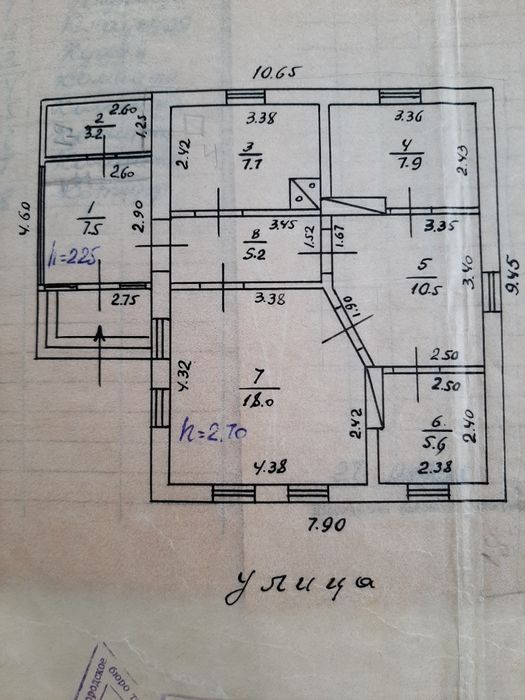 10.65
2.60
2
3.2
1.25
3.38
3.36
2.42
3
7.7
4
7.9
2.43
2.60
4.60
1
7.5
2.90
h=2.25
3.45
8
5.2
1.52
1.67
3.35
5
10.5
3.40
9.45
2.75
3.38
1.90
4.32
7
18.0
2.50
2.50
h=2.70
2.42
6
5.6
2.40
4.38
2.38
7.90
улица
городское
бюро т